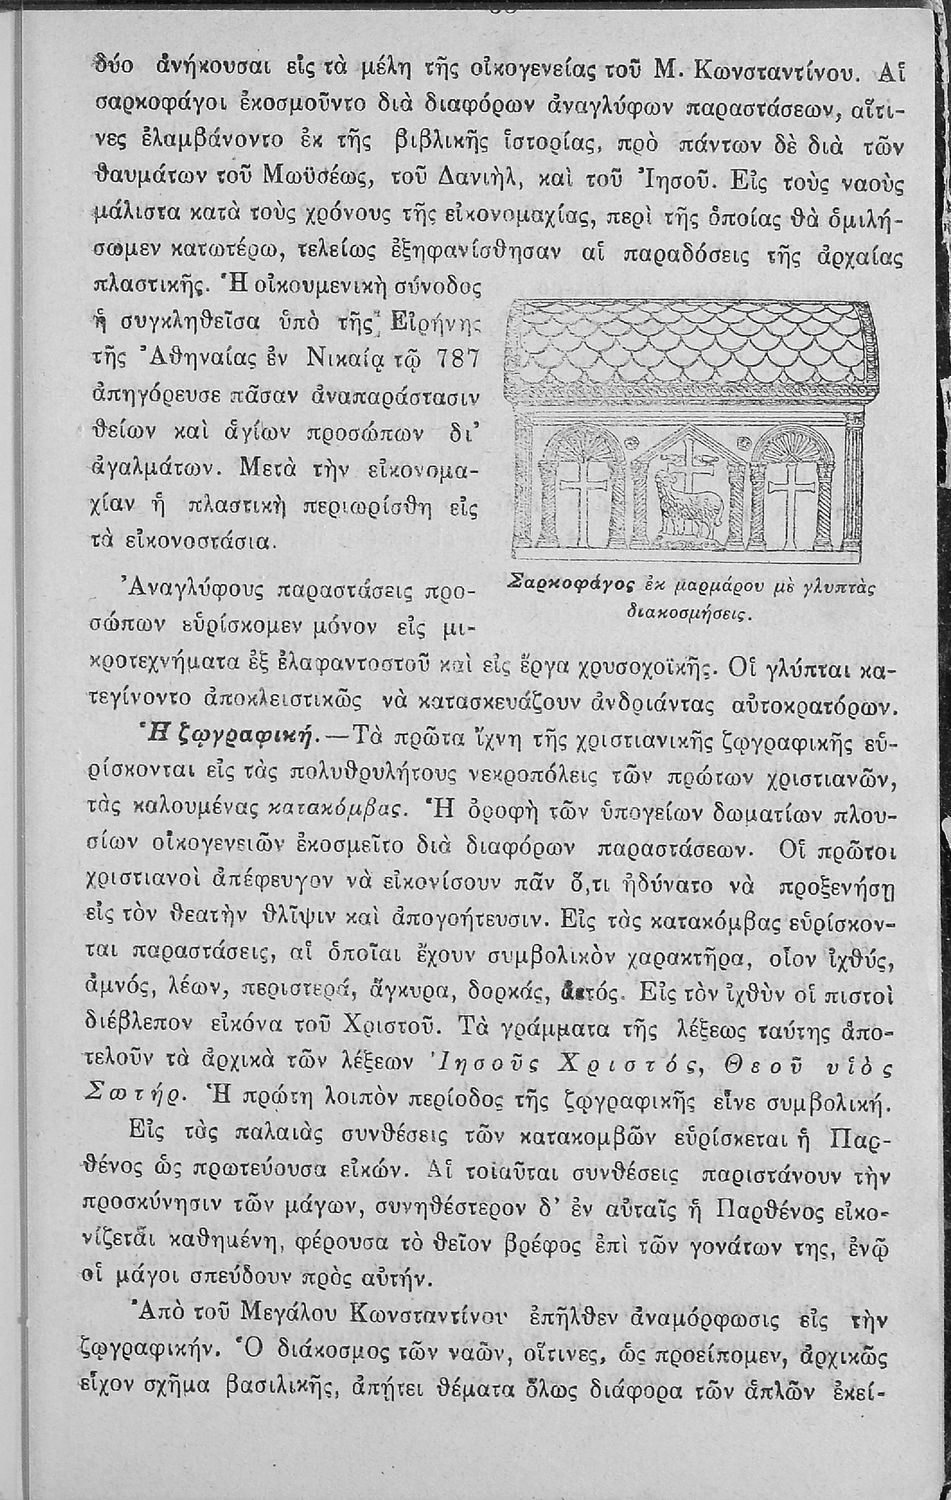 δύο ἀνήκουσαι εἰς τὰ μέλη τῆς οἰκογενείας τοῦ Μ. Κωνσταντίνου. Αἱ
σαρκοφάγοι ἐκοσμοῦντο διὰ διαφόρων ἀναγλύφων παραστάσεων, αἵτι-
νες ἐλαμβάνοντο ἐκ τῆς βιβλικῆς ἱστορίας, πρὸ πάντων δὲ διὰ τῶν
θαυμάτων τοῦ Μωϋσέως, τοῦ Δανιὴλ, καὶ τοῦ Ἰησοῦ. Εἰς τοὺς ναοὺς
μάλιστα κατὰ τοὺς χρόνους τῆς εἰκονομαχίας, περὶ τῆς ὁποίας θὰ ὁμιλή-
σωμεν κατωτέρω, τελείως ἐξηφανίσθησαν αἱ παραδόσεις τῆς ἀρχαίας
πλαστικῆς. Ἡ οἰκουμενικὴ σύνοδος
ἡ συγκληθεῖσα ὑπὸ τῆς Εἰρήνης
τῆς Ἀθηναίας ἐν Νικαίᾳ τῷ 787
ἀπηγόρευσε πᾶσαν ἀναπαράστασιν
θείων καὶ ἁγίων προσώπων δι'
ἀγαλμάτων. Μετὰ τὴν εἰκονομα-
χίαν ἡ πλαστικὴ περιωρίσθη εἰς
τὰ εἰκονοστάσια.
Σαρκοφάγος ἐκ μαρμάρου μὲ γλυπτὰς
διακοσμήσεις.
Ἀναγλύφους παραστάσεις προ-
σώπων εὑρίσκομεν μόνον εἰς μι-
κροτεχνήματα ἐξ ἐλαφαντοστοῦ καὶ εἰς ἔργα χρυσοχοϊκῆς. Οἱ γλύπται κα-
τεγίνοντο ἀποκλειστικῶς νὰ κατασκευάζουν ἀνδριάντας αὐτοκρατόρων.
Ἡ ζῳγραφική.—Τὰ πρῶτα ἴχνη τῆς χριστιανικῆς ζῳγραφικῆς εὑ-
ρίσκονται εἰς τὰς πολυθρυλήτους νεκροπόλεις τῶν πρώτων χριστιανῶν,
τὰς καλουμένας κατακόμβας. Ἡ ὀροφὴ τῶν ὑπογείων δωματίων πλου-
σίων οἰκογενειῶν ἐκοσμεῖτο διὰ διαφόρων παραστάσεων. Οἱ πρῶτοι
χριστιανοὶ ἀπέφευγον νὰ εἰκονίσουν πᾶν ὅ,τι ἠδύνατο νὰ προξενήσῃ
εἰς τὸν θεατὴν θλῖψιν καὶ ἀπογοήτευσιν. Εἰς τὰς κατακόμβας εὑρίσκον-
ται παραστάσεις, αἱ ὁποῖαι ἔχουν συμβολικὸν χαρακτῆρα, οἷον ἰχθύς,
ἀμνός, λέων, περιστερά, ἄγκυρα, δορκάς, ἀετός. Εἰς τὸν ἰχθὺν οἱ πιστοὶ
διέβλεπον εἰκόνα τοῦ Χριστοῦ. Τὰ γράμματα τῆς λέξεως ταύτης ἀπο-
τελοῦν τὰ ἀρχικὰ τῶν λέξεων Ἰησοῦς Χριστός, Θεοῦ υἱὸς
Σωτήρ. Ἡ πρώτη λοιπὸν περίοδος τῆς ζῳγραφικῆς εἶνε συμβολική.
Εἰς τὰς παλαιὰς συνθέσεις τῶν κατακομβῶν εὑρίσκεται ἡ Παρ-
θένος ὡς πρωτεύουσα εἰκών. Αἱ τοιαῦται συνθέσεις παριστάνουν τὴν
προσκύνησιν τῶν μάγων, συνηθέστερον δ' ἐν αὐταῖς ἡ Παρθένος εἰκο-
νίζεται καθημένη, φέρουσα τὸ θεῖον βρέφος ἐπὶ τῶν γονάτων της, ἐνῷ
οἱ μάγοι σπεύδουν πρὸς αὐτήν.
Ἀπὸ τοῦ Μεγάλου Κωνσταντίνου ἐπῆλθεν ἀναμόρφωσις εἰς τὴν
ζῳγραφικήν. Ὁ διάκοσμος τῶν ναῶν, οἵτινες, ὡς προείπομεν, ἀρχικῶς
εἶχον σχῆμα βασιλικῆς, ἀπῄτει θέματα ὅλως διάφορα τῶν ἁπλῶν ἐκεί-